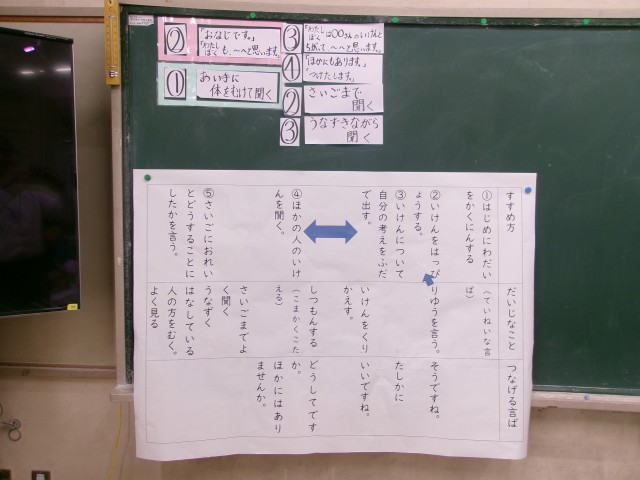 ②
「おなじです。」
「わたし ぼく も、~へと思います。」
③
「わたし ぼく は〇〇さんのいけんと
ちがって ~へと思います。」
①
あい手に
体をむけて聞く
④
「ほかにもあります。」
「つけたします。」
②
さいごまで
聞く
③
うなずきながら
聞く
すすめ方
だいじなこと
つなげる言ば
①はじめにわだい
をかくにんする
(ていねいな言
ば)
②いけんをはっぴ
ょうする。
りゆうを言う。
そうですね。
③いけんについて
自分の考えをふだ
で出す。
いけんをくり
かえす。
たしかに
いいですね。
④ほかの人のいけ
んを聞く。
しつもんする
(こまかくこた
える)
どうしてです
か。
ほかにはあり
ませんか。
⑤さいごにおれい
とどうすることに
したかを言う。
さいごまでよ
く聞く
うなずく
はなしている
人の方をむく。
よく見る